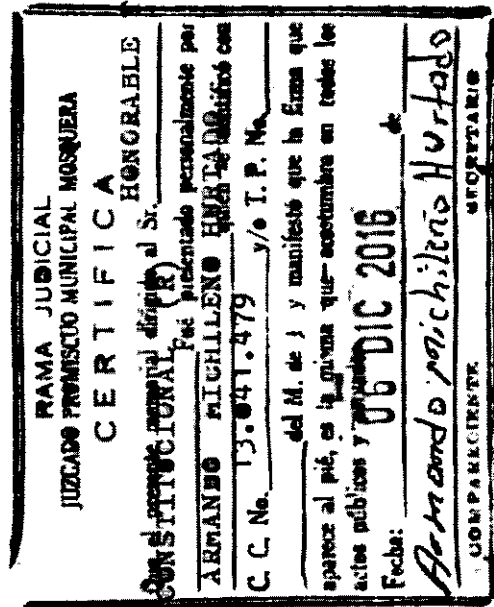 RAMA JUDICIAL
JUZGADO PROMISCUO MUNICIPAL MOSQUERA
CERTIFICA
HONORABLE
Que el presente memorial dirigido al Sr.
CONSTITUCIONAL (R)
Fué presentado personalmente por
ARMANDO MICHILENO HURTADO
quien se identificó con
C. C. No. 13.041.479 y/o T. P. No.
del M. de J y manifestó que la firma que
aparece al pié, es la misma que acostumbra en todos los
actos públicos y privados
Fecha: 06 DIC 2016 de
Armando Michileño Hurtado
COMPARECIENTE SECRETARIO